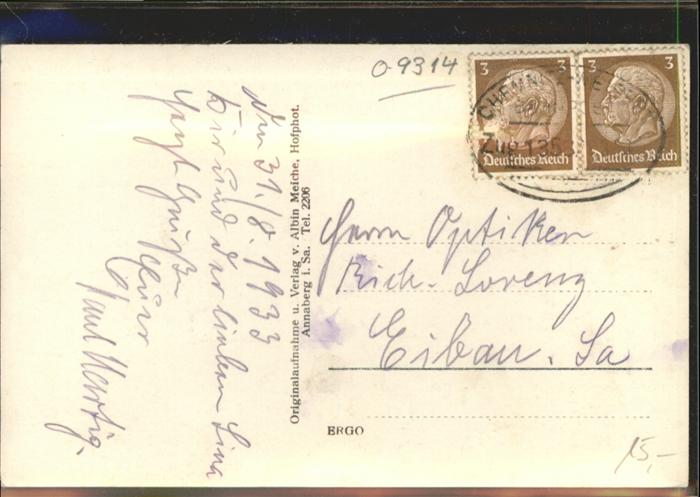 O-9314
3
3
Deutsches Reich
3
3
Deutsches Reich
CHEMN
Zug 135
Den 31./8. 1933
Dir und der lieben Lina
herzl. Grüße
Euer
Paul Hertig.
Originalaufnahme u. Verlag v. Albin Meiche, Hofphot.
Annaberg i. Sa. Tel. 2206
Herrn Optiker
Rich. Lorenz
Eibau. Sa
ERGO
15,-